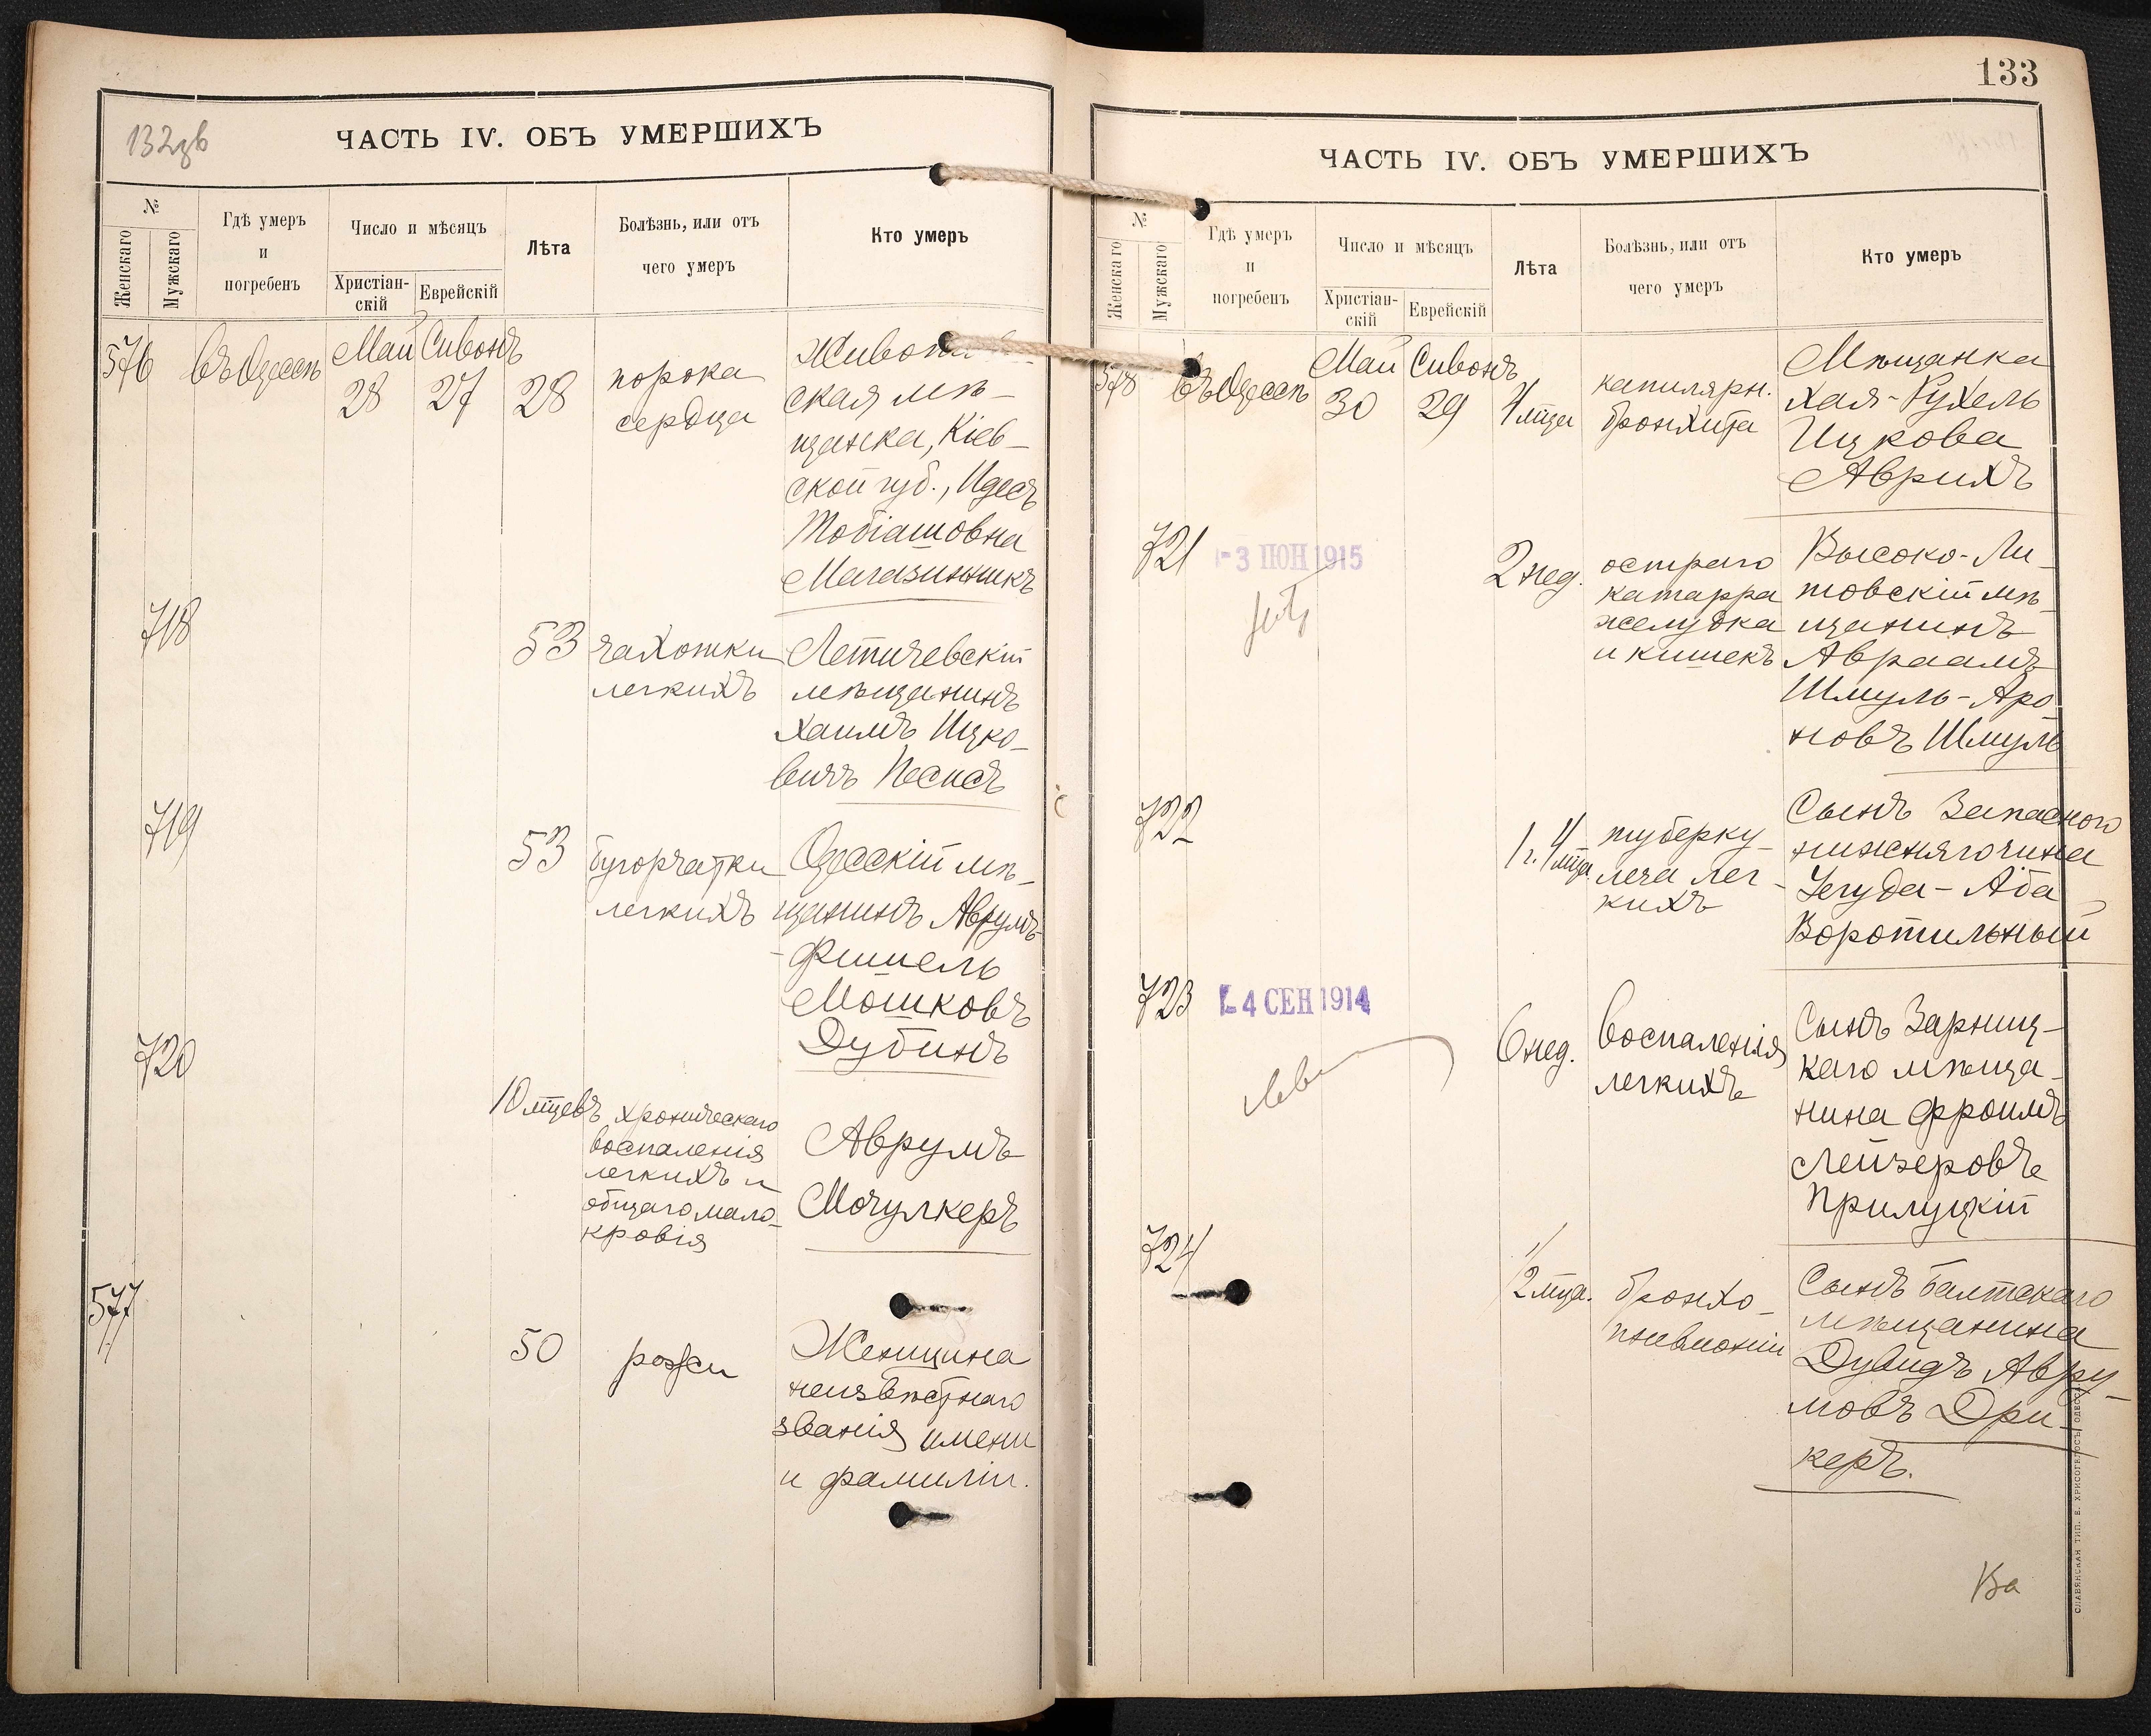 132 об
ЧАСТЬ IV. ОБЪ УМЕРШИХЪ
№
Женскаго
Мужскаго
Гдѣ умеръ
и
погребенъ
Число и мѣсяцъ
Христіан-
скій
Еврейскій
Лѣта
Болѣзнь, или отъ
чего умеръ
Кто умеръ
576
въ Одессѣ
Май
28
Сивонъ
27
28
порока
сердца
ская мѣ-
щанка, Кіев-
ской губ., Идесъ
Тобіашовна
Магазинникъ
718
53
чахотки
легкихъ
Летичевскій
мѣщанинъ
Хаимъ Ицко-
вичъ Песисъ
719
53
бугорчатки
легкихъ
Одесскій мѣ-
щанинъ Аврумъ-
Фишель
Мошковъ
Дубинъ
720
10 мцевъ
хроническаго
воспаленія
легкихъ и
общаго мало-
кровія
Аврумъ
Мочулкеръ
577
50
рожи
Женщина
неизвѣстнаго
званія имени
и фамиліи.
133
ЧАСТЬ IV. ОБЪ УМЕРШИХЪ
№
Женскаго
Мужскаго
Гдѣ умеръ
и
погребенъ
Число и мѣсяцъ
Христіан-
скій
Еврейскій
Лѣта
Болѣзнь, или отъ
чего умеръ
Кто умеръ
578
въ Одессѣ
Май
30
Сивонъ
29
4 мца
капилярн.
бронхита
Мѣщанка
Хая-Рухель
Ицкова
Аврихъ
721
-3 ІЮН 1915
2 нед.
остраго
катарра
желудка
и кишекъ
Высоко-Ли-
товскій мѣ-
щанинъ
Авраамъ
Шмуль-Аро
новъ Шмуль
722
1 г. 4 мца.
туберку-
леза лег-
кихъ
Сынъ Запасного
нижняго чина
Іегуда-Аба
Воротильный
723
-4 СЕН 1914
6 нед.
воспаленія
легкихъ
Сынъ Зарниц-
каго мѣща-
нина Фроимъ
Лейзеровъ
Прилуцкій
724
1/2 мца.
бронхо-
пневмоніи
Сынъ Балтскаго
мѣщанина
Дувидъ Авру-
мовъ Дри-
керъ.
Ва
СЛАВЯНСКАЯ ТИП. Е. ХРИСОГЕЛОСЪ, ОДЕССА